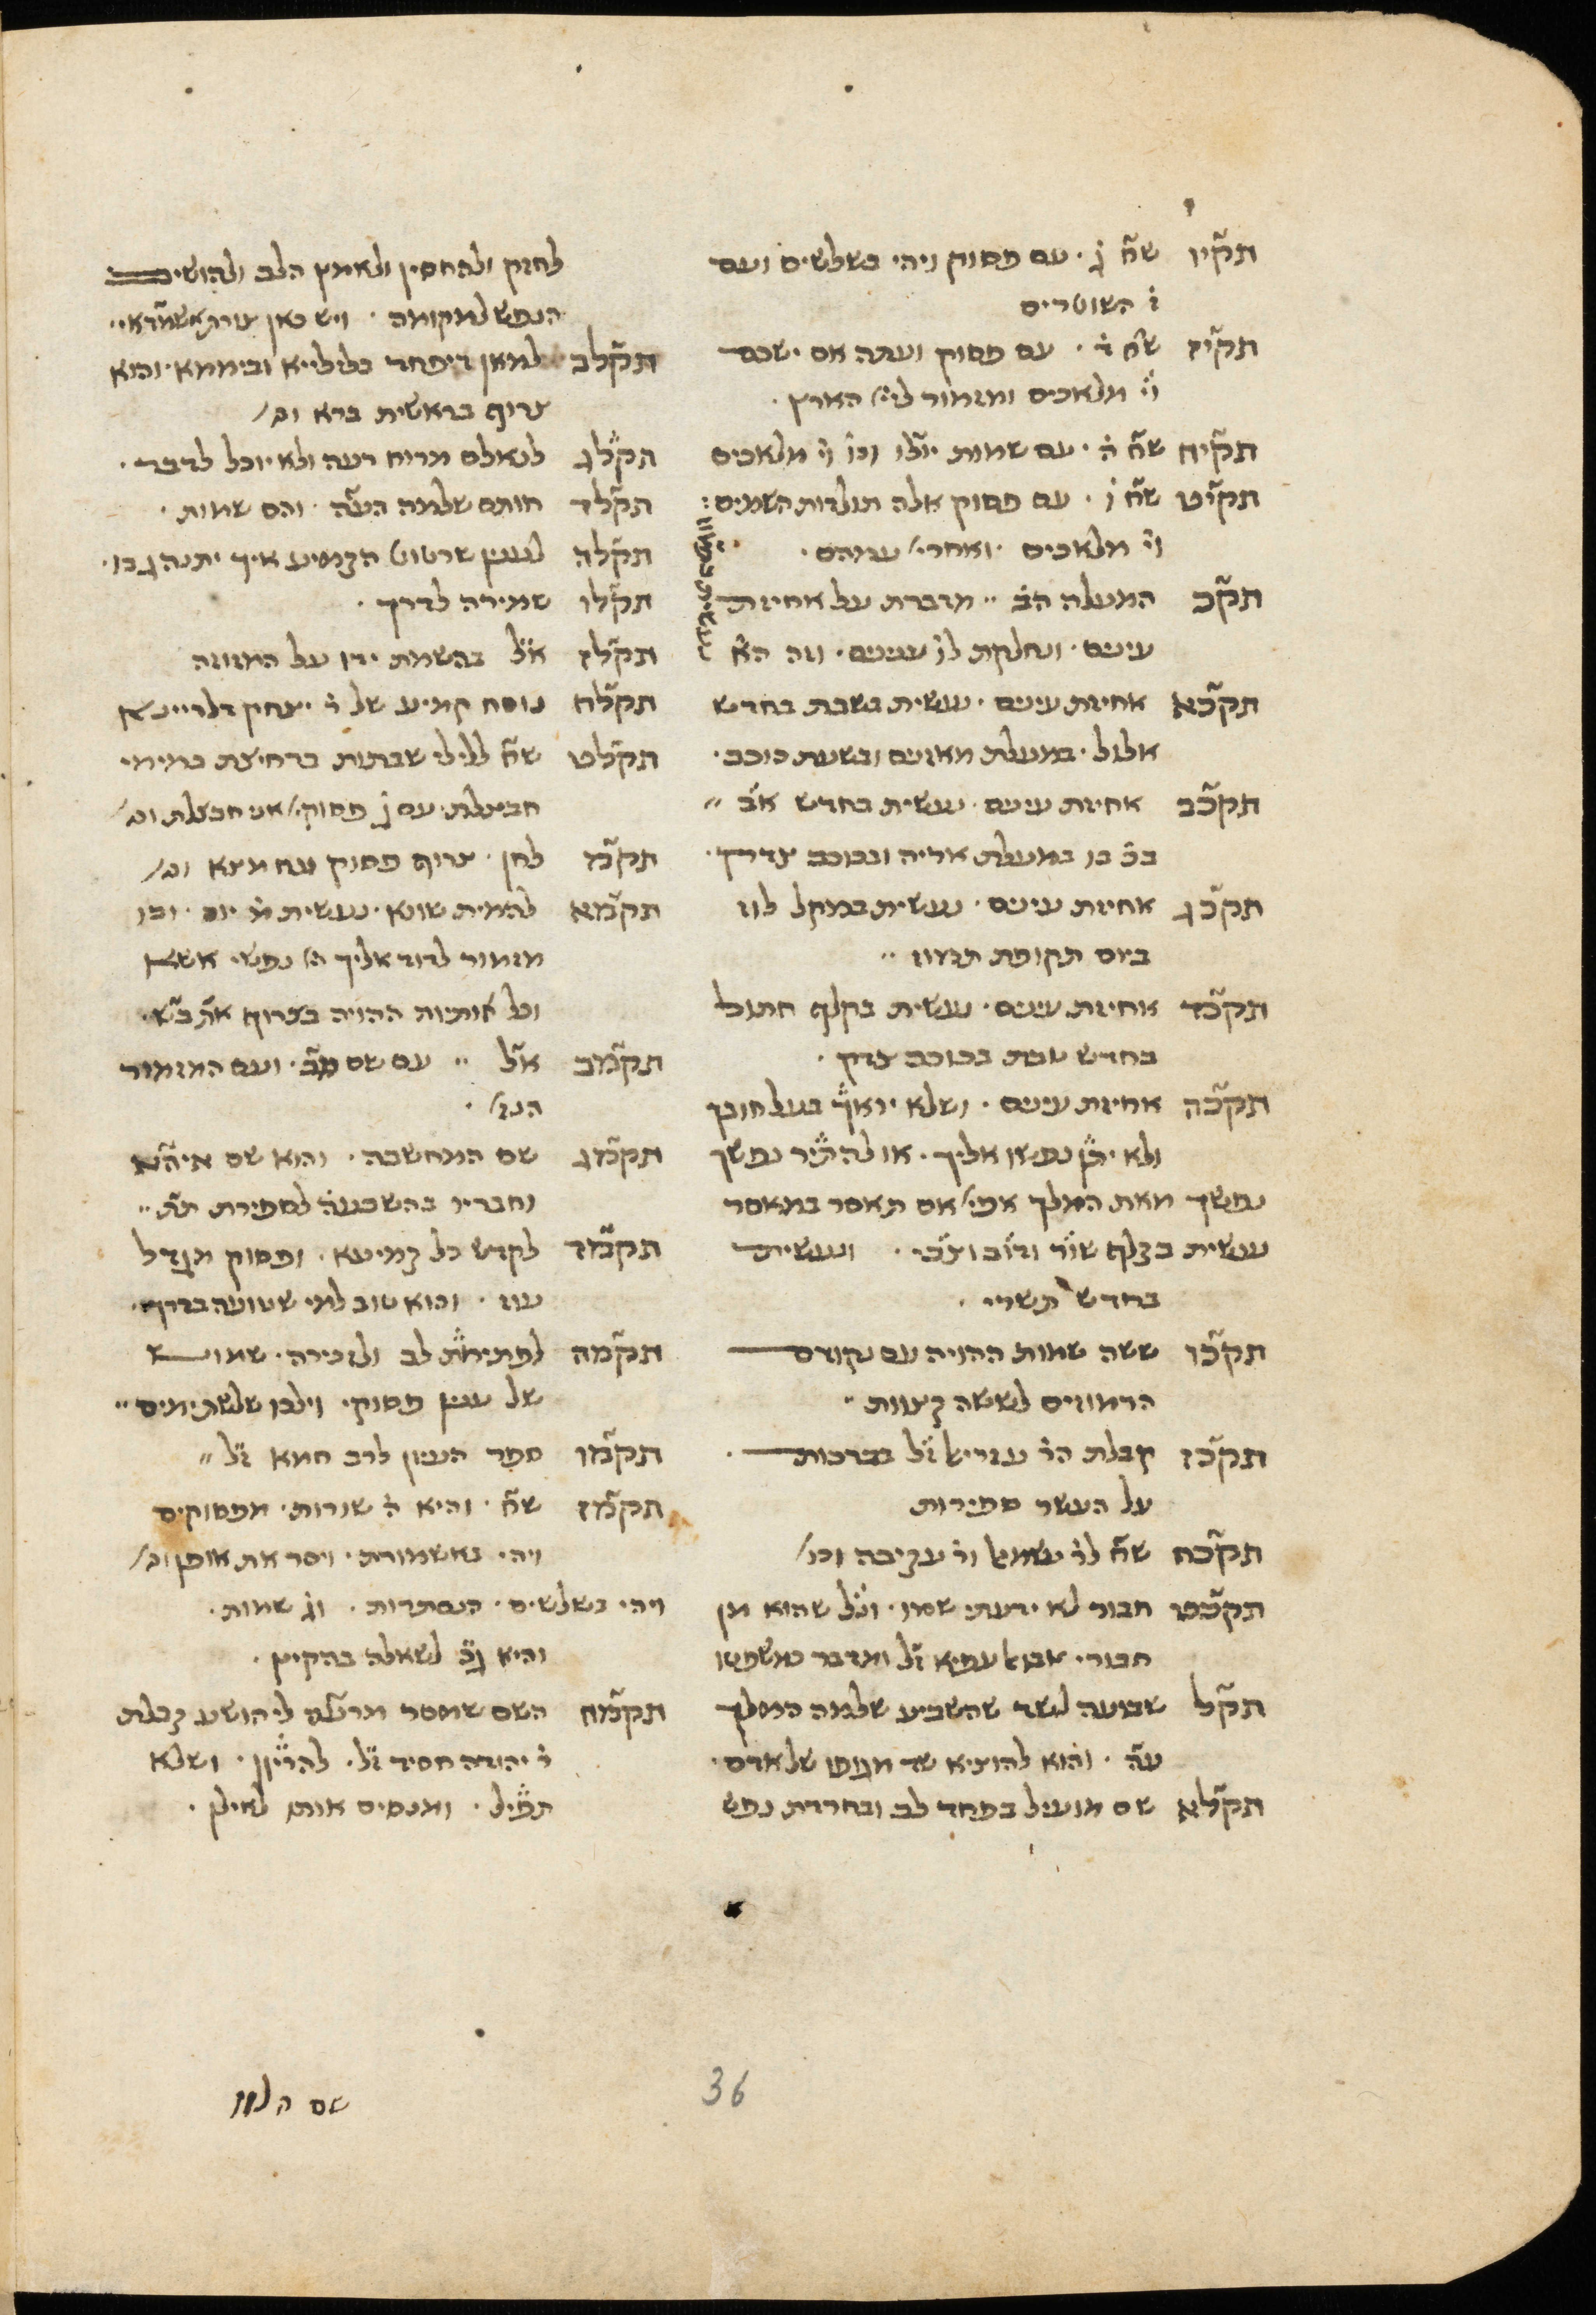 תק״יו שא״ח ג׳. עם פסוק ויהי בשלשים ועם
ז׳ השוטרים
תק״יז שא״ח ד׳. עם פסוק ועתה אם ישכם
וי׳ מלאכים ומזמור לי״י הארץ.
תק״יח שא״ח ה׳. עם שמות יצ״לו וכו׳ וי׳ מלאכים
תק״יט שא״ח ו׳. עם פסוק אלה תולדות השמים:
וי׳ מלאכים. ואחרי׳ עמהם.
תק״כ המעלה הב׳״ מדברת על אחיזת
עינים. ונחלקת לו׳ ענינים. וזה הא׳
תק״כא אחיזת עינים. נעשית בשבת בחדש
אלול. במעלת מאזנים ובשעת כוכב.
תק״כב אחיזת עינים. נעשית בחדש א״ב״
בכ׳ בו במעלת אריה ובכוכב צדק.
תק״כג אחיזת עינים. נעשית במקל לוז
ביום תקופת תמוז״
תק״כד אחיזת עינים. נעשית בקלף חתול
בחדש טבת בכוכב צדק.
תק״כה אחיזת עינים. ושלא יראך בעל חובך
ולא יתן נפשו אליך. או להתיר נפשך
נפשך מאת המלך אפי׳ אם תאסר במאסר
נעשית בקלף שור ודוב וצבי. ונעשית
בחדש תשרי.
תק״כו ששה שמות ההויה עם נקודם
הרמוזים לששה קצוות״
תק״כז קבלת הר׳ עזריאל ז״ל בברכות.
על העשר ספירות
תק״כח שא״ח לר׳ ישמעאל ור׳ עקיבה וכו׳
תק״כט חבור לא ידעתי שמו. ונ״ל שהוא מן
חבורי אבולעפיא ז״ל ומדבר כמשפטו
תק״ל שבועה לשד שהשביע שלמה המלך
ע״ה. והוא להוציא שד מגופו של אדם.
תק״לא שם מועיל בפחד לב ובחרדת נפש
לחזק ולהחסין ולאמץ הלב ולהושיב
הנפש למקומה. ויש כאן צורת
תק״לב למאן דיפחד בליליא וביממא. והוא
צרוף בראשית ברא וכו׳
תק״לג לנאלם מרוח רעה ולא יוכל לדבר.
תק״לד חותם שלמה הע״ה. והם שמות.
תק״לה לענין שרטוט הקמיע איך יתנהג בו.
תק״לו שמירה לדרך.
תק״לז א״ל בהשמת ידו על המזוזה
תק״לח נוסח קמיע של ר׳ יצחק דלריינא
תק״לט שא״ח ללילי שבתות ברחיצת במימי
חבצלת. עם ג׳ פסוקי׳ אני חבצלת וכו׳
תק״מ לחן. צרוף פסוק ונח מצא וכו׳
תק״מא להמית שונא. נעשית מ׳ יום. ובו
מזמור לדוד אליך ה׳ נפשי אשא
וכל אותיות ההויה בצרוף א״ת ב״ש.
תק״מב א״ל״ עם שם מ״ב. ועם המזמור
הנז׳.
תק״מג שם המחשבה. והוא שם
וחבריו בהשבעה לספירת ת״ת״
תק״מד לקדש כל קמיעא. ופסוק מגדל
עוז. והוא טוב למי שטועה בדרך.
תק״מה לפתיחת לב ולזכירה. שמות
של ענין פסוקי וילכו שלשת ימים״
תק״מו ספר העיון לרב חמא ז״ל״
תק״מז שא״ח. והיא ה׳ שורות. מפסוקים
ויהי באשמורת. ויסר את אופן וכו׳
ויהי בשלשים. הנסתרות. וג׳ שמות.
והיא ג״כ לשאלה בהקיץ.
תק״מח השם שמסר מרע״ה ליהושע קבלת
ר׳ יהודה חסיד ז״ל. להריון. ושלא
תפיל. ומנסים אותו לאילן.
שם הנוו
36